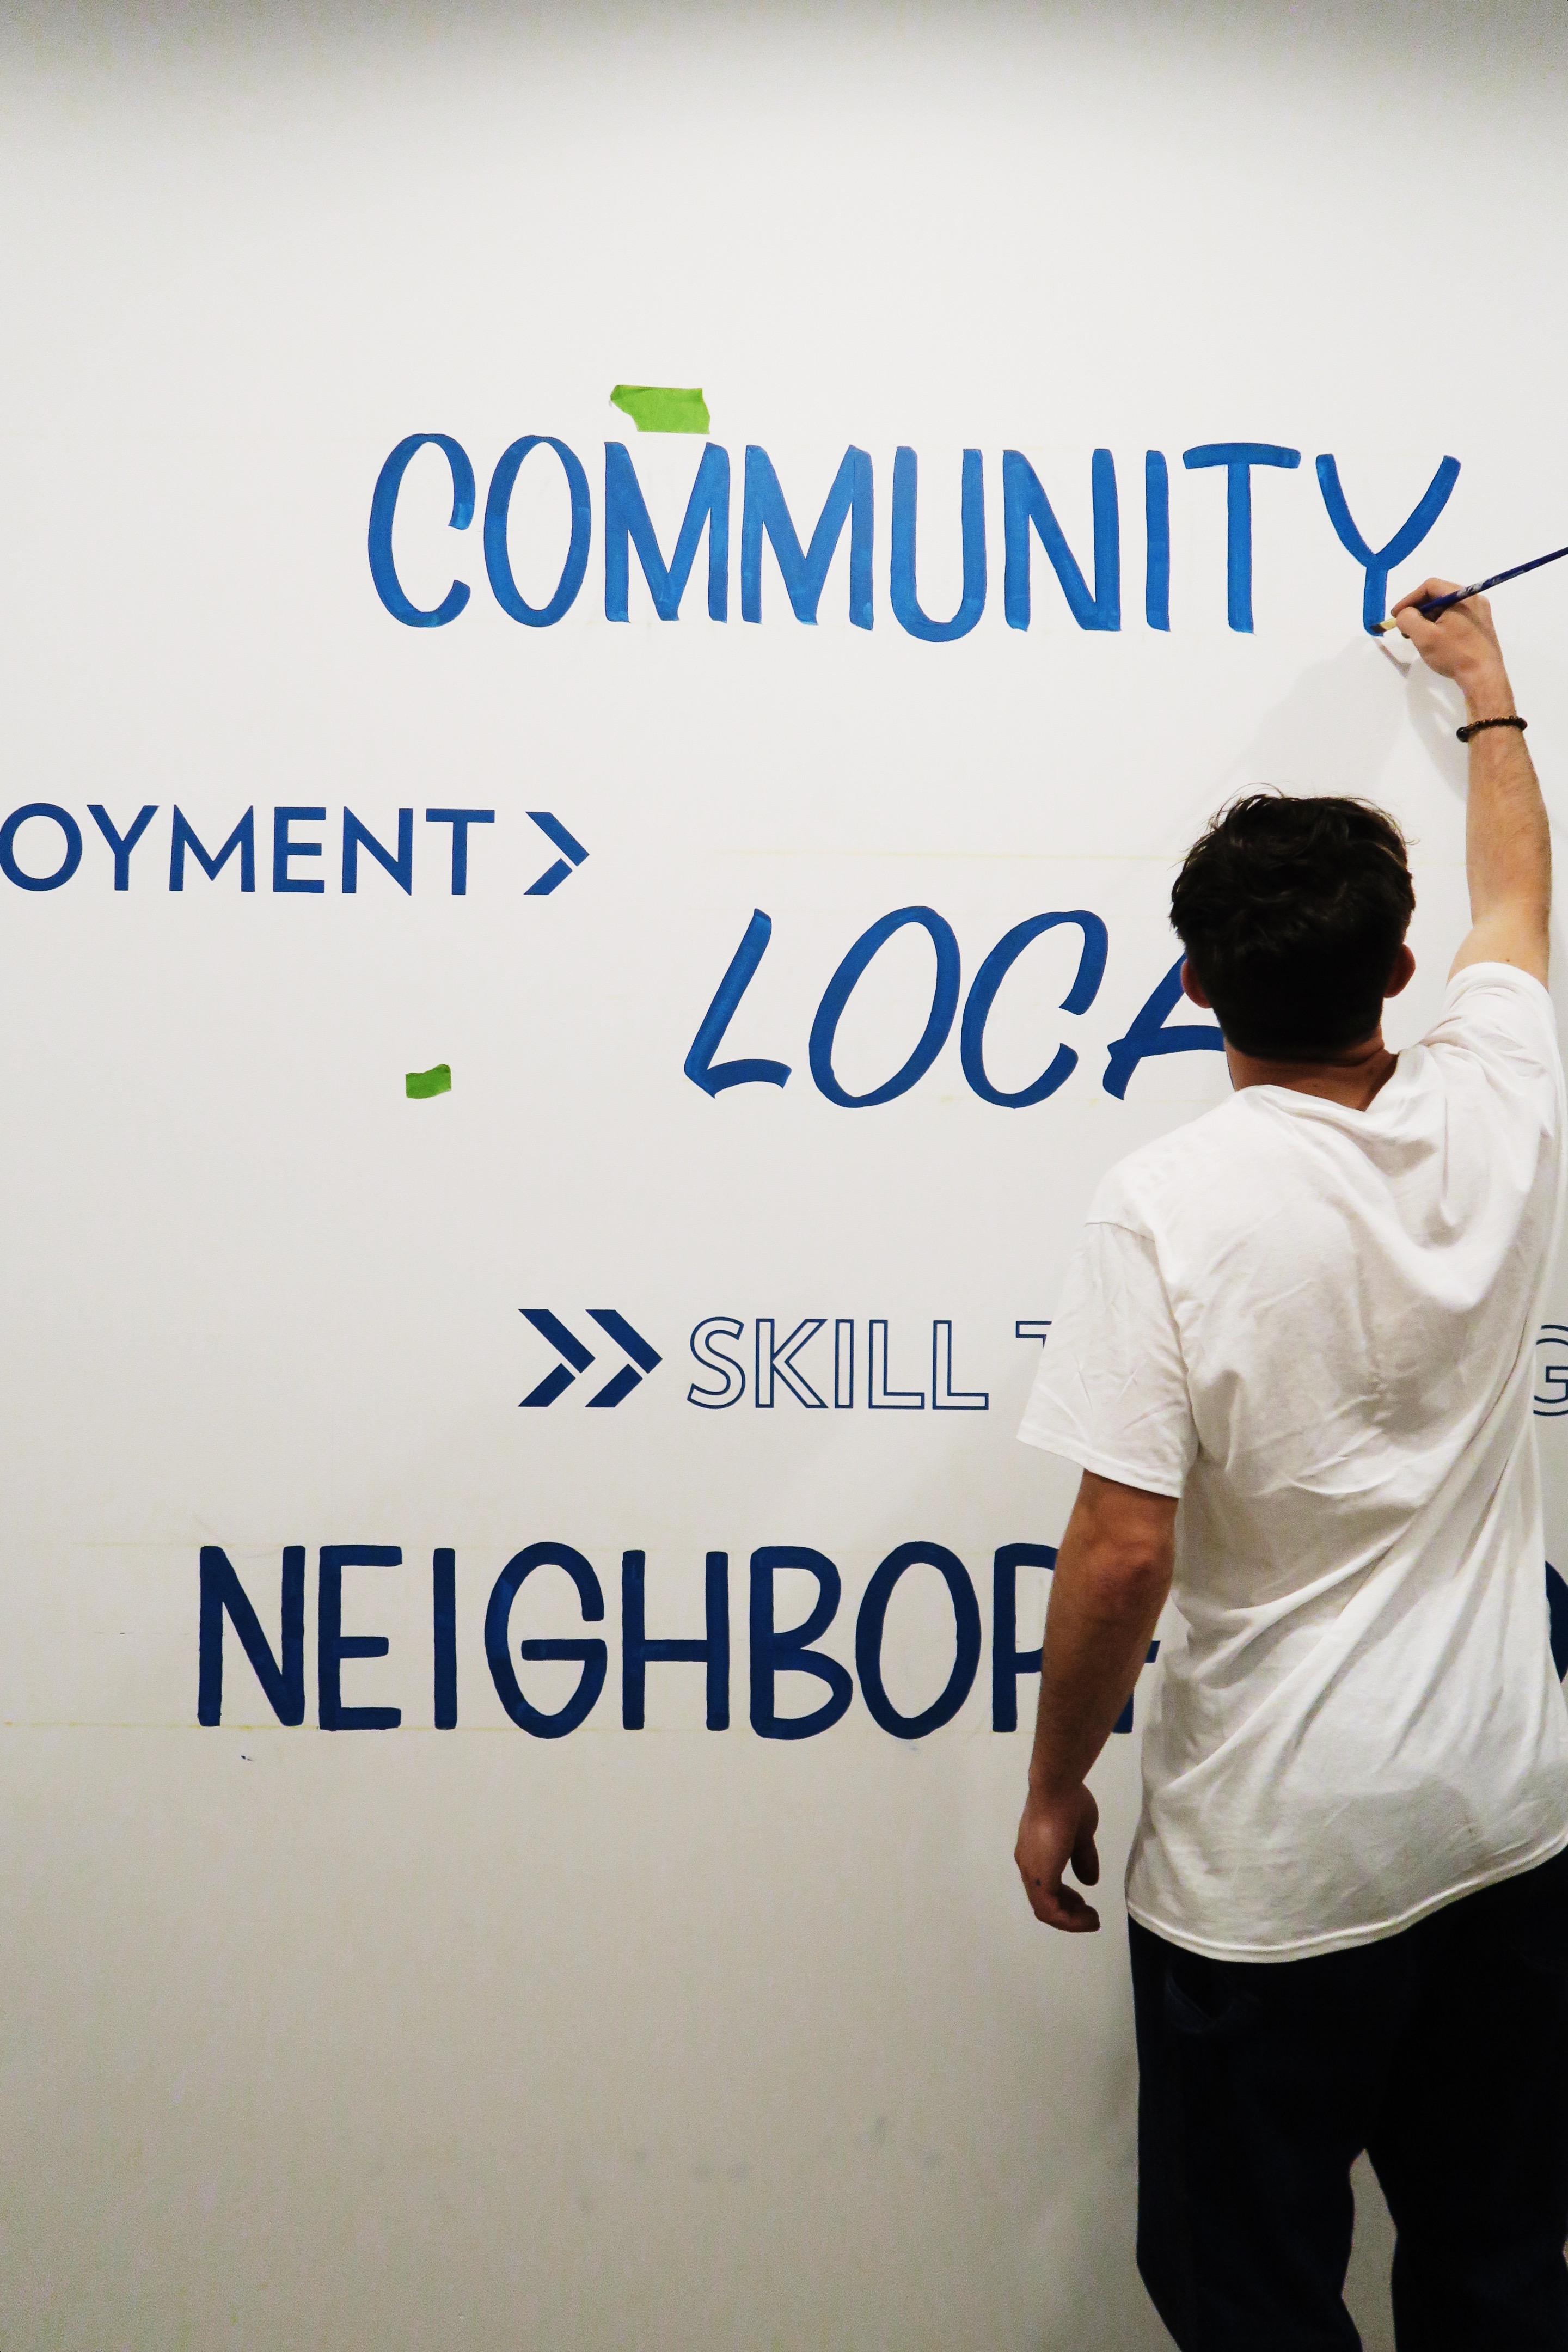 COMMUNITY
OYMENT
LOCA
SKILL
NEIGHBO